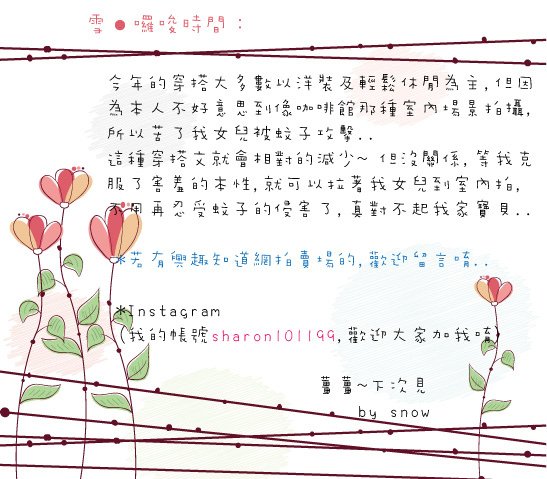 雪●囉唆時間：
今年的穿搭大多數以洋裝及輕鬆休閒為主,但因
為本人不好意思到像咖啡館那種室內場景拍攝,
所以苦了我女兒被蚊子攻擊..
這種穿搭文就會相對的減少~ 但沒關係,等我克
服了害羞的本性,就可以拉著我女兒到室內拍,
不用再忍受蚊子的侵害了,真對不起我家寶貝..
*若有興趣知道網拍賣場的,歡迎留言唷..
*Instagram
(我的帳號sharon101199,歡迎大家加我唷)
薑薑~下次見
by snow